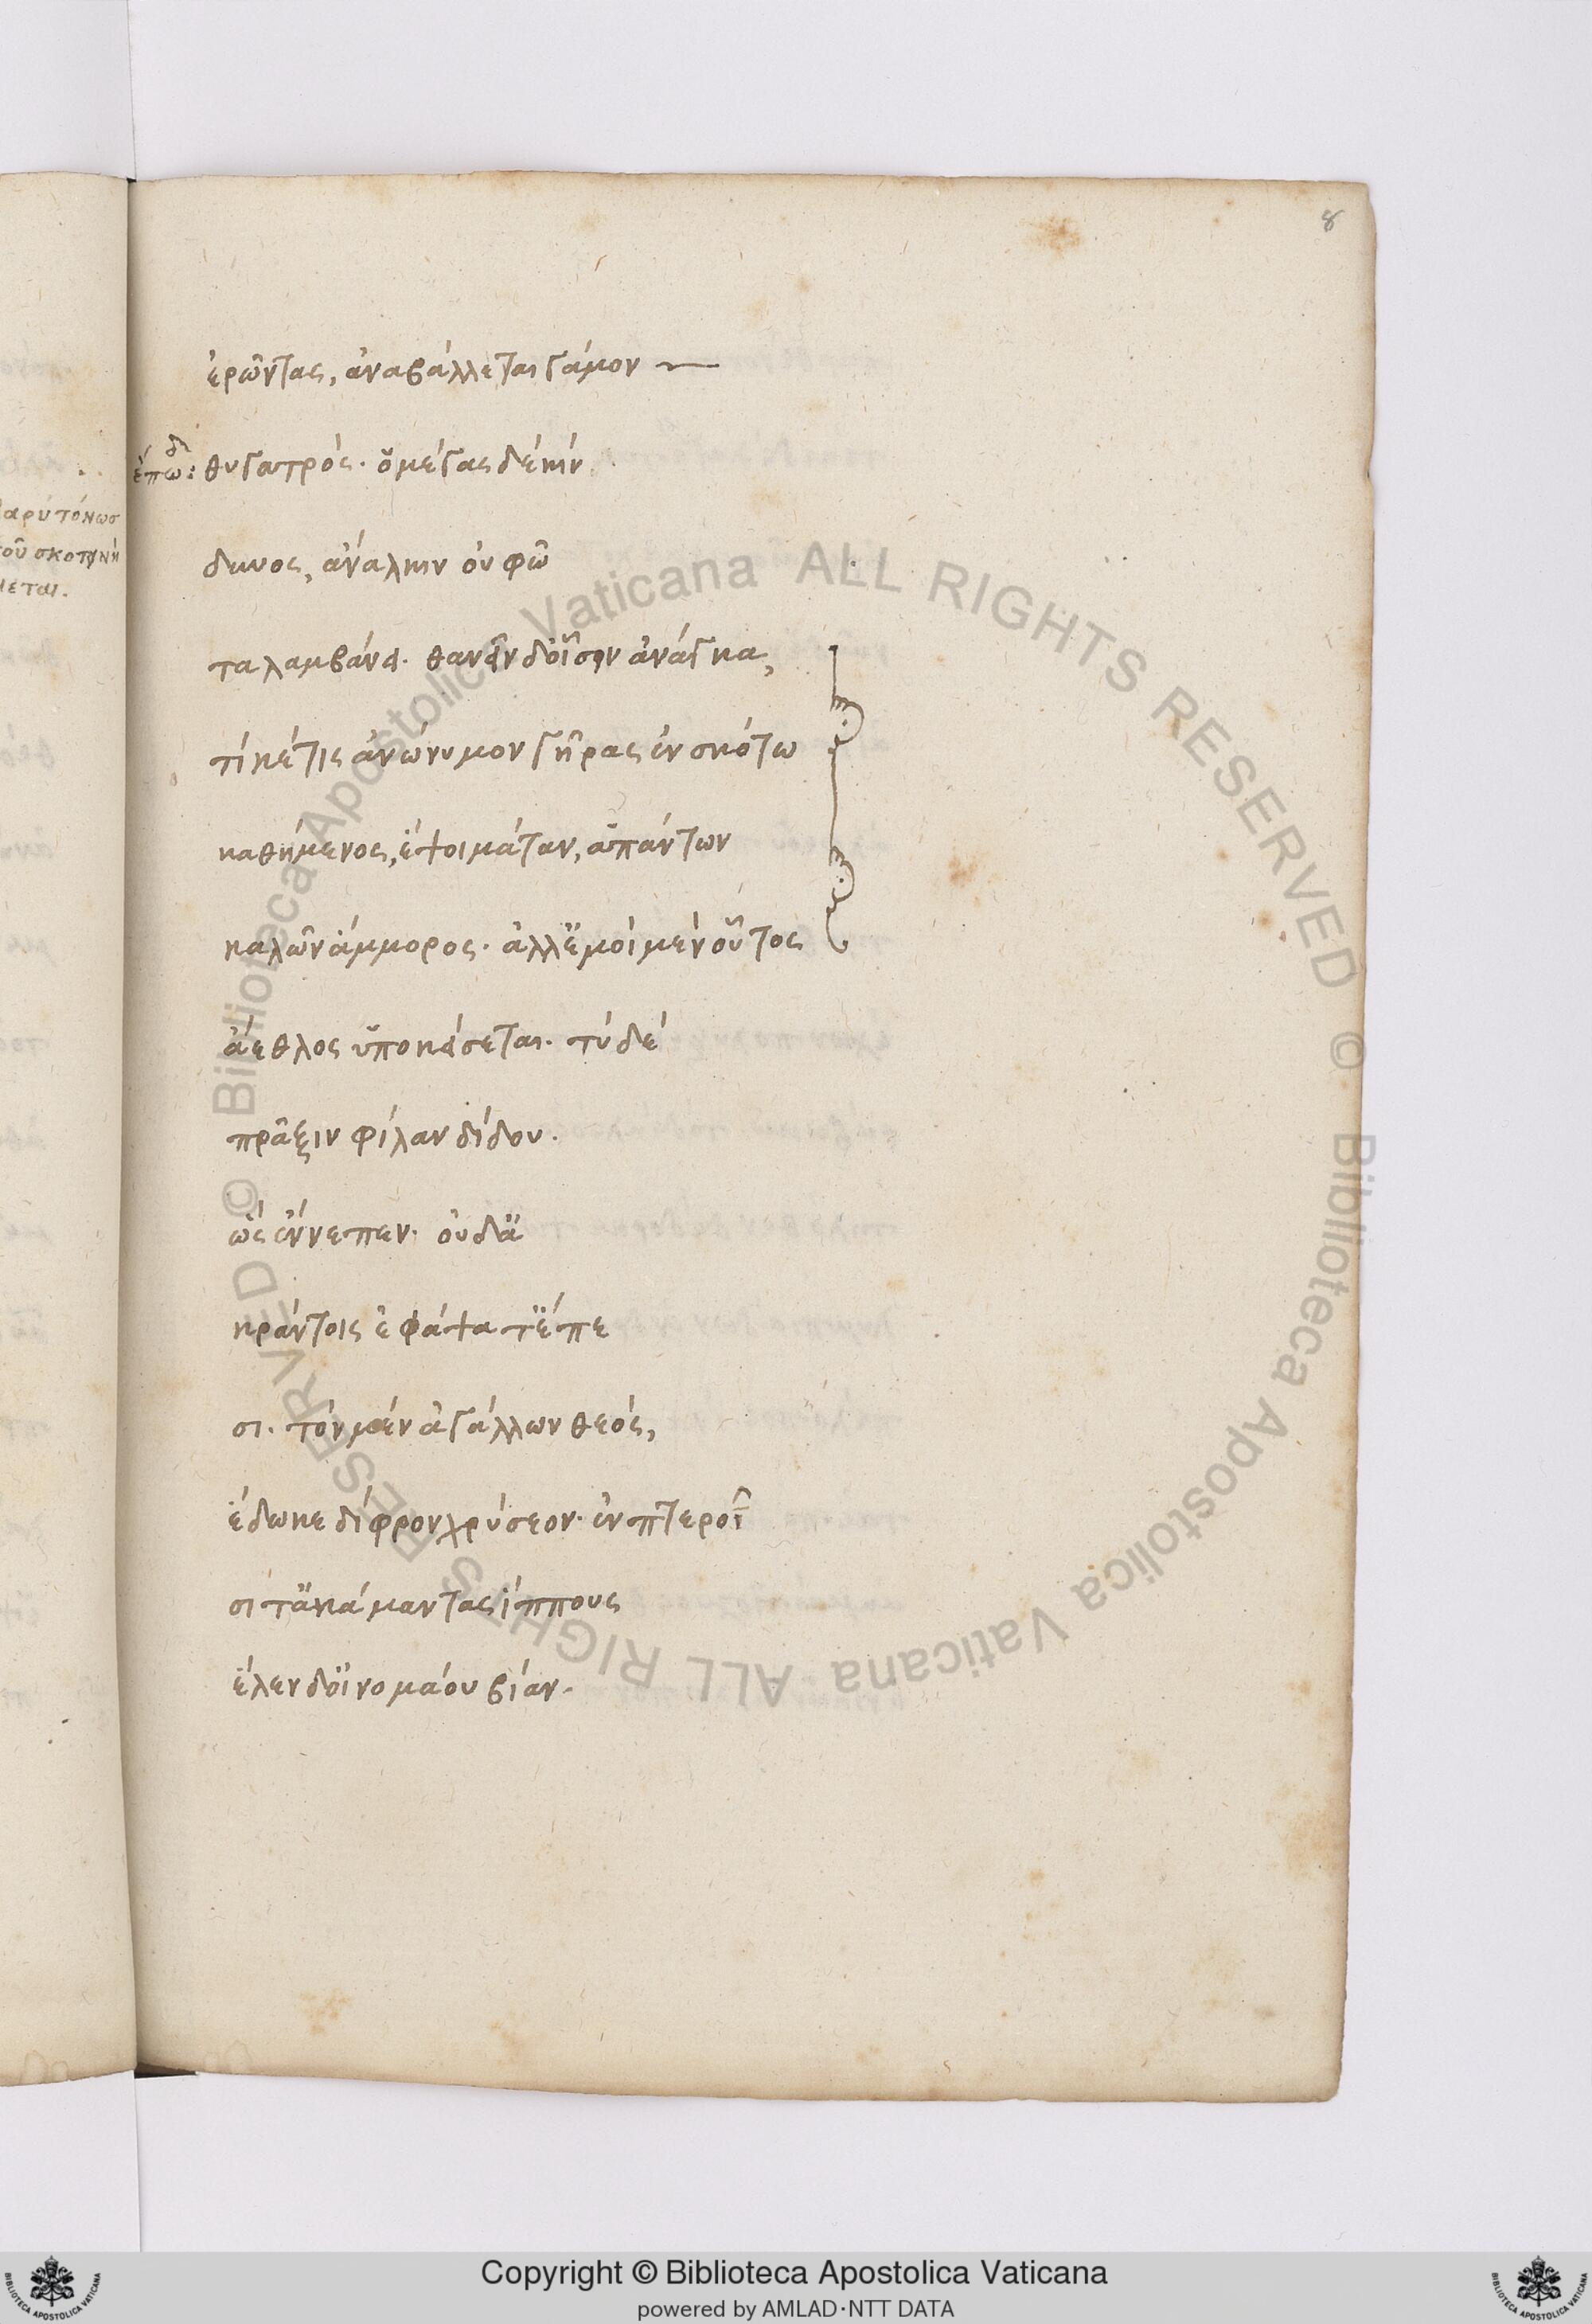 8
ἐρῶντας, ἀναβάλλεται γάμον
ἐπῳδ: θυγατρός. ὁ μέγας δέ κίν
δυνος, ἄναλκιν οὐ φῶ
τα λαμβάνει. θανεῖν δ' οἷσιν ἀνάγκα,
τί κέ τις ἀνώνυμον γῆρας ἐν σκότω
καθήμενος, ἕψοι μάταν, ἁπάντων
καλῶν ἄμμορος. ἀλλ' ἐμοὶ μὲν οὗτος
ἄεθλος ὑποκείσεται. τύ δέ
πρᾶξιν φίλαν δίδου.
ὣς ἔννεπεν. οὐδ' ἀ
κράντοις ἐφάψατ' ἔπε
σι. τὸν μὲν ἀγάλλων θεός,
ἔδωκε δίφρον χρύσεον. ἐν πτεροῖ
σί τ' ἀκάμαντας ἵππους
ἕλεν δ' οἰνομάου βίαν.
αρυτόνωσ
οῦ σκοτινὴ
ιεται.
Biblioteca Apostolica Vaticana ALL RIGHTS RESERVED © Biblioteca Apostolica Vaticana ALL RIGHTS RESERVED ©
Copyright © Biblioteca Apostolica Vaticana
powered by AMLAD·NTT DATA
BIBLIOTECA APOSTOLICA VATICANA
BIBLIOTECA APOSTOLICA VATICANA